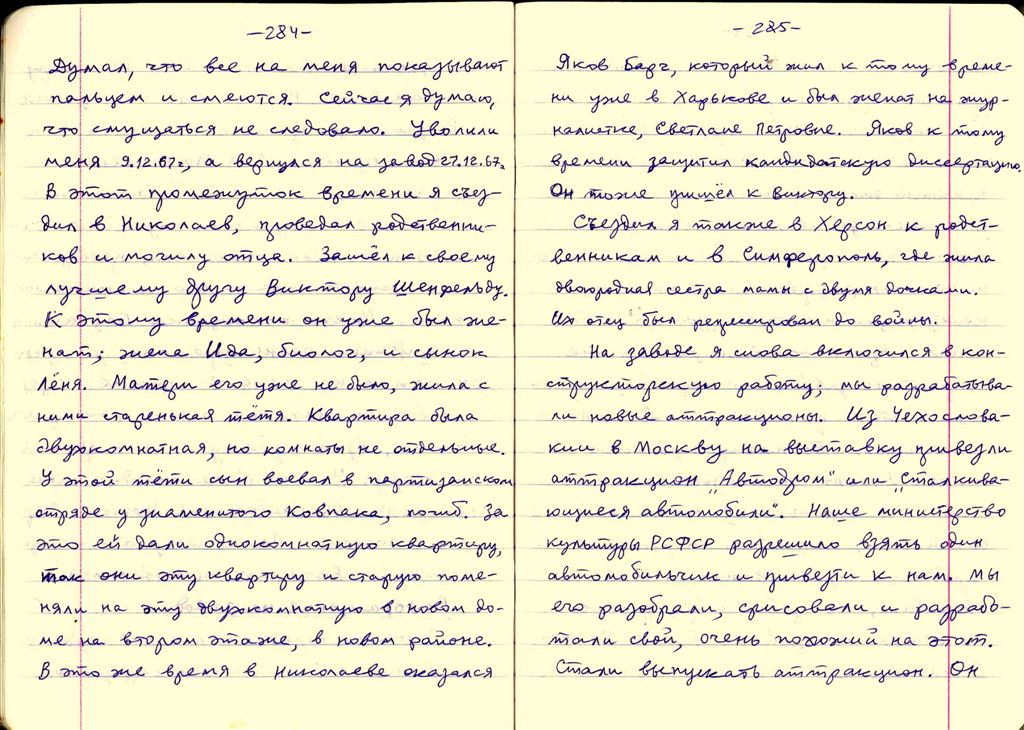 —284—
Думал, что все на меня показывают
пальцем и смеются. Сейчас я думаю,
что смущаться не следовало. Уволили
меня 9.12.67г, а вернулся на завод 27.12.67г.
В этот промежуток времени я съез-
дил в Николаев, проведал родственни-
ков и могилу отца. Зашёл к своему
лучшему другу Виктору Шенфельду.
К этому времени он уже был же-
нат; жена Ида, биолог, и сынок
Лёня. Матери его уже не было, жила с
ними старенькая тётя. Квартира была
двухкомнатная, но комнаты не отдельные.
У этой тёти сын воевал в партизанском
отряде у знаменитого Ковпака, погиб. За
это ей дали однокомнатную квартиру,
так они эту квартиру и старую поме-
няли на эту двухкомнатную в новом до-
ме на втором этаже, в новом районе.
В это же время в Николаеве оказался
—285—
Яков Барг, который жил к тому време-
ни уже в Харькове и был женат на жур-
налистке, Светлане Петровне. Яков к тому
времени защитил кандидатскую диссертацию.
Он тоже пришёл к Виктору.
Съездил я также в Херсон к родст-
венникам и в Симферополь, где жила
двоюродная сестра мамы с двумя дочками.
Их отец был репрессирован до войны.
На заводе я снова включился в кон-
структорскую работу; мы разрабатыва-
ли новые аттракционы. Из Чехослова-
кии в Москву на выставку привезли
аттракцион „Автодром" или „Сталкива-
ющиеся автомобили". Наше министерство
культуры РСФСР разрешило взять один
автомобильчик и привезти к нам. Мы
его разобрали, срисовали и разрабо-
тали свой, очень похожий на этот.
Стали выпускать аттракцион. Он